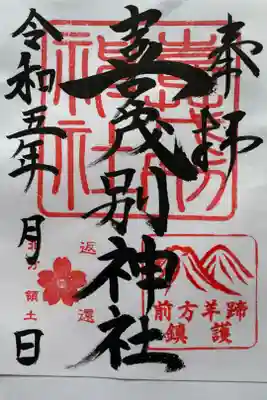 奉拝
喜茂別神社
令和五年 月 日
喜茂別
神社
前方羊蹄
鎮護
返還
北方領土